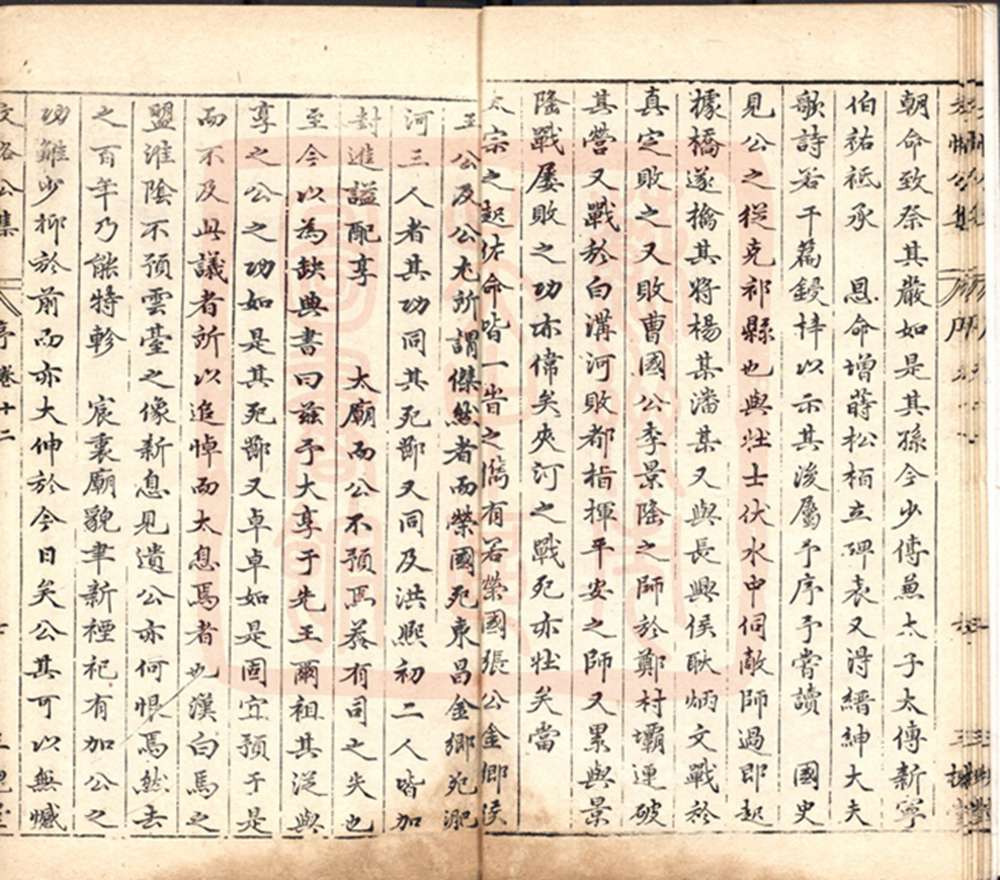 朝命致祭其嚴如是其孫今少傅兼太子太傅新寧
伯祐祗承　恩命增蒔松栢立碑表又淂縉紳大夫
歌詩若干篇鋟梓以示其後屬予序予嘗讀　國史
見公之從克祁縣也與壯士伏水中伺敵師過即起
據橋遂擒其將楊某潘某又與長興侯耿炳文戰於
真定敗之又敗曹國公李景隆之師於鄭村壩連破
其營又戰於白溝河敗都指揮平安之師又累與景
隆戰屢敗之功亦偉矣夾河之戰死亦壯矣當
太宗之起佐命皆一時之儁有若榮國張公金鄉侯
王公及公尤所謂傑然者而榮國死東昌金鄉死淝
河三人者其功同其死鄙又同及洪熙初二人皆加
封進謚配享　太廟而公不預焉葢有司之失也
至今以為缺典書曰茲予大享于先王爾祖其從與
享之公之功如是其死鄙又卓卓如是固宜預于是
而不及此議者所以追悼而太息焉者也漢白馬之
盟淮陰不預雲臺之像新息見遺公亦何恨焉然去
之百年乃能特軫　宸衷廟貌聿新禋祀有加公之
功雖少抑於前而亦大伸於今日矣公其可以無憾
文恪公集　序卷十二